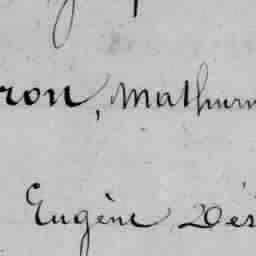 ron, Mathurin
Eugène Dés